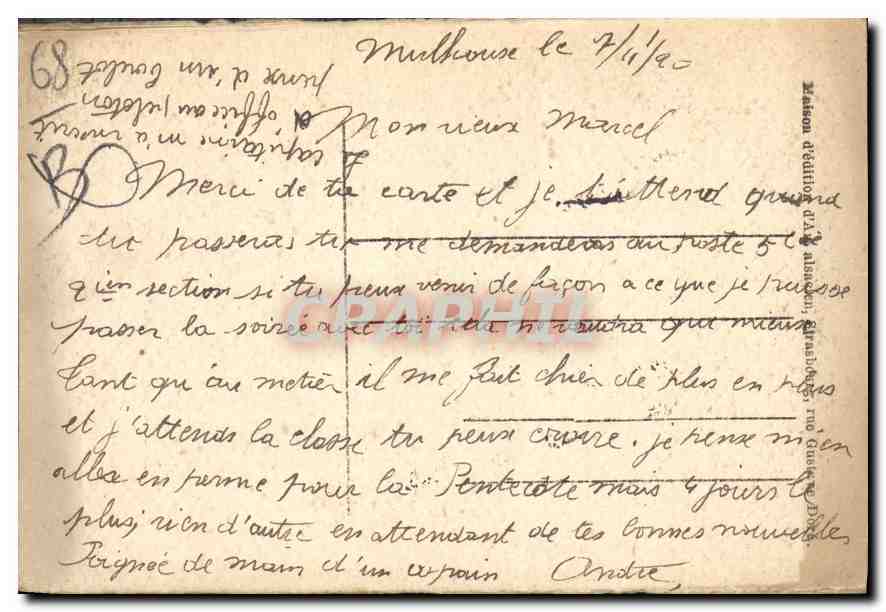 68
Mulhouse le
Mon vieux Marcel
Merci de ta carte et je t'attend quand
tu passeras tu me demanderas au poste 5
section si tu peux venir de façon a ce que je puisse
passer la soirée avec toi cela ne vaudra que mieux
Tant qu'au metier il me fait chier de plus en plus
et j'attends la classe tu peux croire. je pense m'en
aller en perme pour la Pentecote mais 4 jours le
plus, rien d'autre en attendant de tes bonnes nouvelles
Poignée de main d'un copain André
Le capitaine m'a inscrit
d'office au peloton
pense d'un boulot
Maison d'édition d'Art alsacien, Strasbourg, rue Gustave Doré.
CPAPHIL